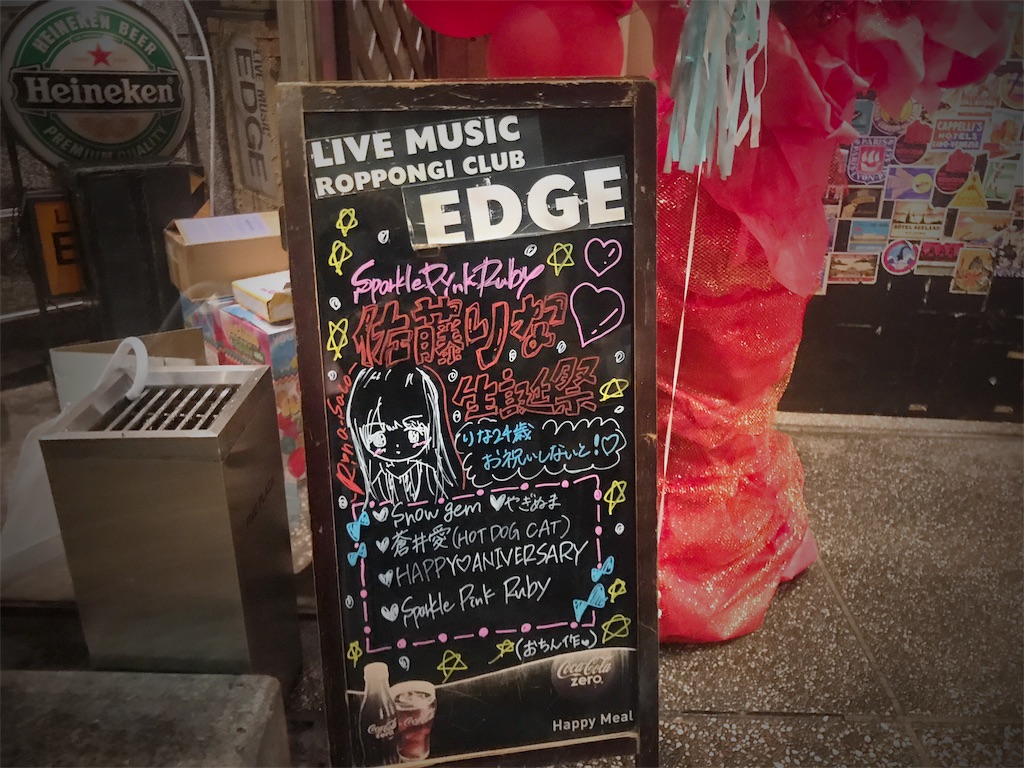 HEINEKEN BEER
Heineken
PREMIUM QUALITY
LIVE MUSIC
EDGE
LIVE MUSIC
ROPPONGI CLUB
EDGE
Sparkle Pink Ruby
佐藤りな
生誕祭
Rina・Sato
りな24歳
お祝いしないと!♡
♥Snow gem ♥やぎぬま
♥蒼井愛(HOT DOG CAT)
♥HAPPY♡ANIVERSARY
♥Sparkle Pink Ruby
(おちん作♥)
Coca-Cola
zero.
Coca-Cola
Happy Meal
CAPPELLI'S
HOTEL
PARIS